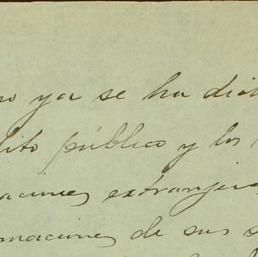 no ya se ha dic
dito público y los
aciones extranjer
maciones de sus s